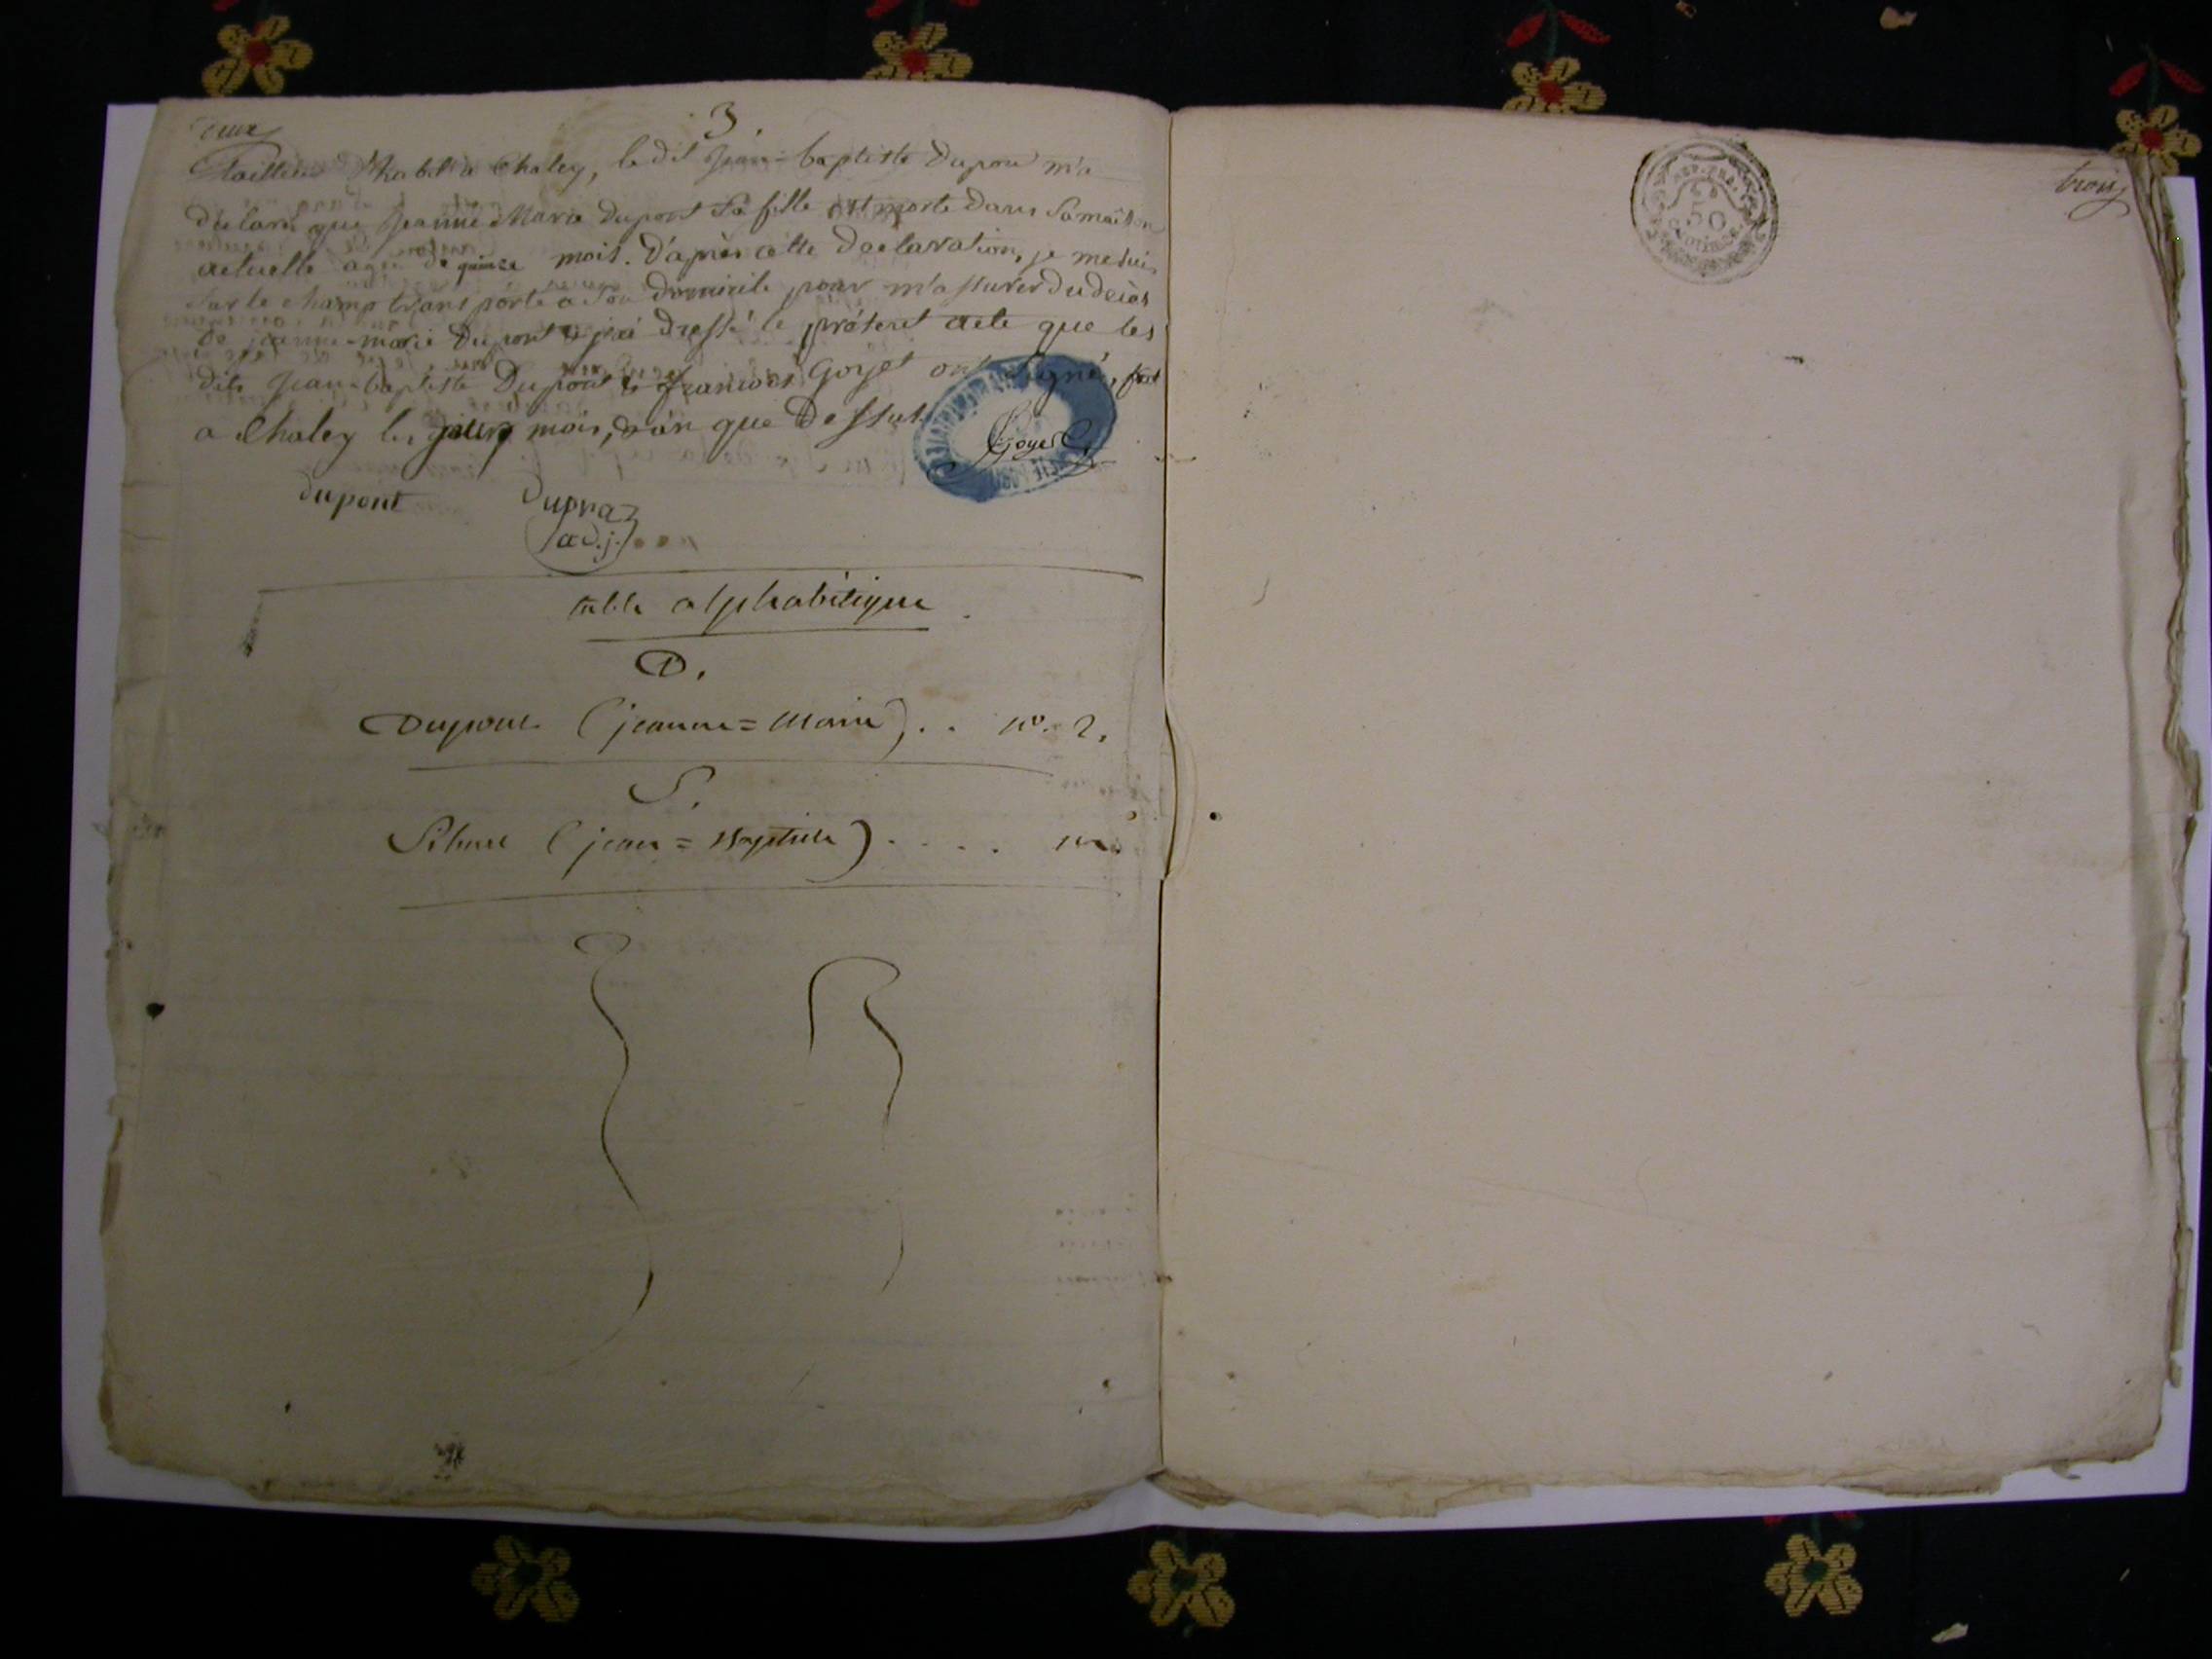 deux
3.
Tailleur habit à Chaley, le dit Jean-baptiste Dupont m'a
déclaré que Jeanne Marie Dupont Sa fille est morte dans Sa maison
actuelle agée de quinze mois. D'après cette Declaration, je me suis
Sur le champ transporté a Son domicile pour m'assurer du décès
de jeanne-marie Dupont & j'ai Dressé le présent acte que les
dits Jean-baptiste Dupont & francois Goyet ont Signé, fait
a Chaley les jour, mois, & an que Dessus.
Goyet
dupont
Dupraz
adj.
table alphabétique
D.
Dupont (jeanne=Marie) . . n.º 2.
S.
(jean=Baptiste) . . . .
REP. FRA.
50
centimes
trois